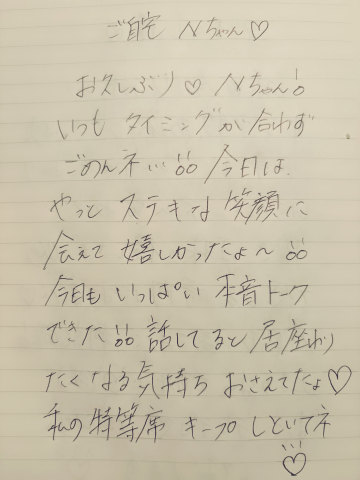 ご自宅 Nちゃん♡
お久しぶり♡ Nちゃん!!
いつも タイミングが 合わず
ごめんネ… 今日は
やっと ステキな 笑顔に
会えて 嬉しかったよ〜
今日も いっぱい 本音トーク
できた 話してると 居座り
たくなる気持ち おさえてたよ♡
私の特等席 キープ しといてネ
♡